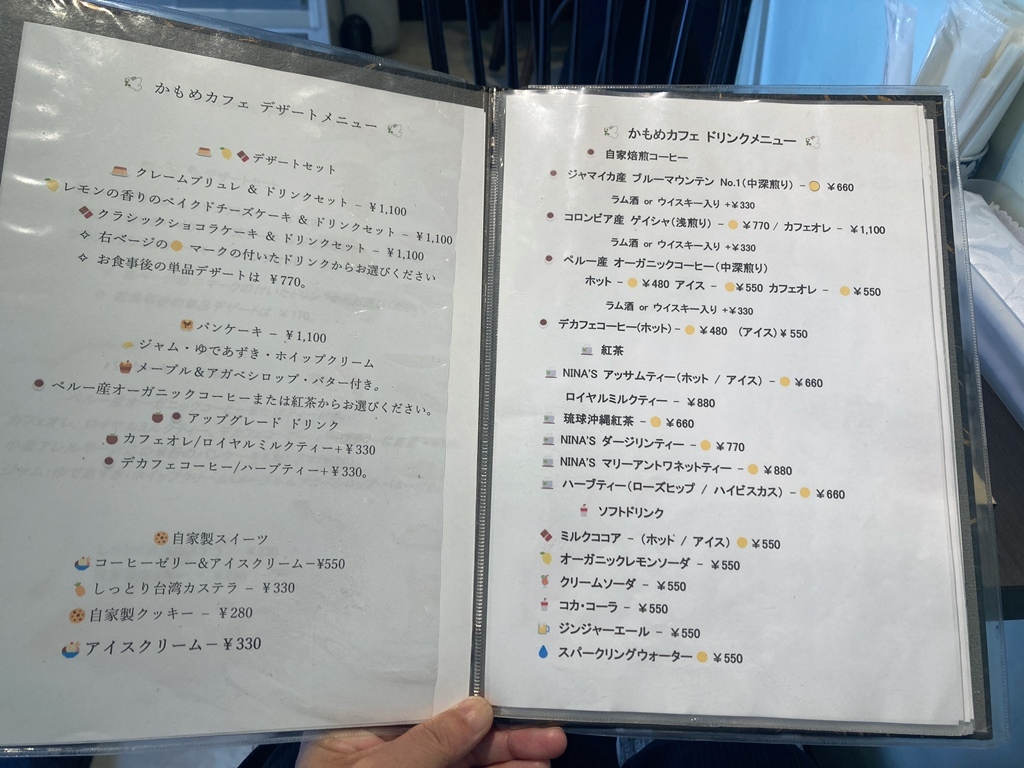 かもめカフェ デザートメニュー
デザートセット
クレームブリュレ & ドリンクセット – ¥1,100
レモンの香りのベイクドチーズケーキ & ドリンクセット – ¥1,100
クラシックショコラケーキ & ドリンクセット – ¥1,100
✧ 右ページの🟡 マークの付いたドリンクからお選びください
✧ お食事後の単品デザートは ¥770。
パンケーキ – ¥1,100
ジャム・ゆであずき・ホイップクリーム
メープル&アガベシロップ・バター付き。
ペルー産オーガニックコーヒーまたは紅茶からお選びください。
アップグレード ドリンク
カフェオレ/ロイヤルミルクティー+¥330
デカフェコーヒー/ハーブティー+¥330。
自家製スイーツ
コーヒーゼリー&アイスクリーム–¥550
しっとり台湾カステラ – ¥330
自家製クッキー – ¥280
アイスクリーム–¥330
かもめカフェ ドリンクメニュー
自家焙煎コーヒー
ジャマイカ産 ブルーマウンテン No.1(中深煎り) –🟡 ¥660
ラム酒 or ウイスキー入り +¥330
コロンビア産 ゲイシャ(浅煎り) –🟡 ¥770 / カフェオレ – ¥1,100
ラム酒 or ウイスキー入り +¥330
ペルー産 オーガニックコーヒー(中深煎り)
ホット –🟡¥480 アイス –🟡¥550 カフェオレ – 🟡¥550
ラム酒 or ウイスキー入り +¥330
デカフェコーヒー(ホット) –🟡 ¥480 (アイス)¥550
紅茶
NINA'S アッサムティー(ホット / アイス) –🟡¥660
ロイヤルミルクティー – ¥880
琉球沖縄紅茶 –🟡¥660
NINA'S ダージリンティー –🟡 ¥770
NINA'S マリーアントワネットティー –🟡 ¥880
ハーブティー(ローズヒップ / ハイビスカス) –🟡¥660
ソフトドリンク
ミルクココア – (ホッド / アイス) 🟡¥550
オーガニックレモンソーダ – ¥550
クリームソーダ – ¥550
コカ・コーラ – ¥550
ジンジャーエール – ¥550
スパークリングウォーター🟡 ¥550